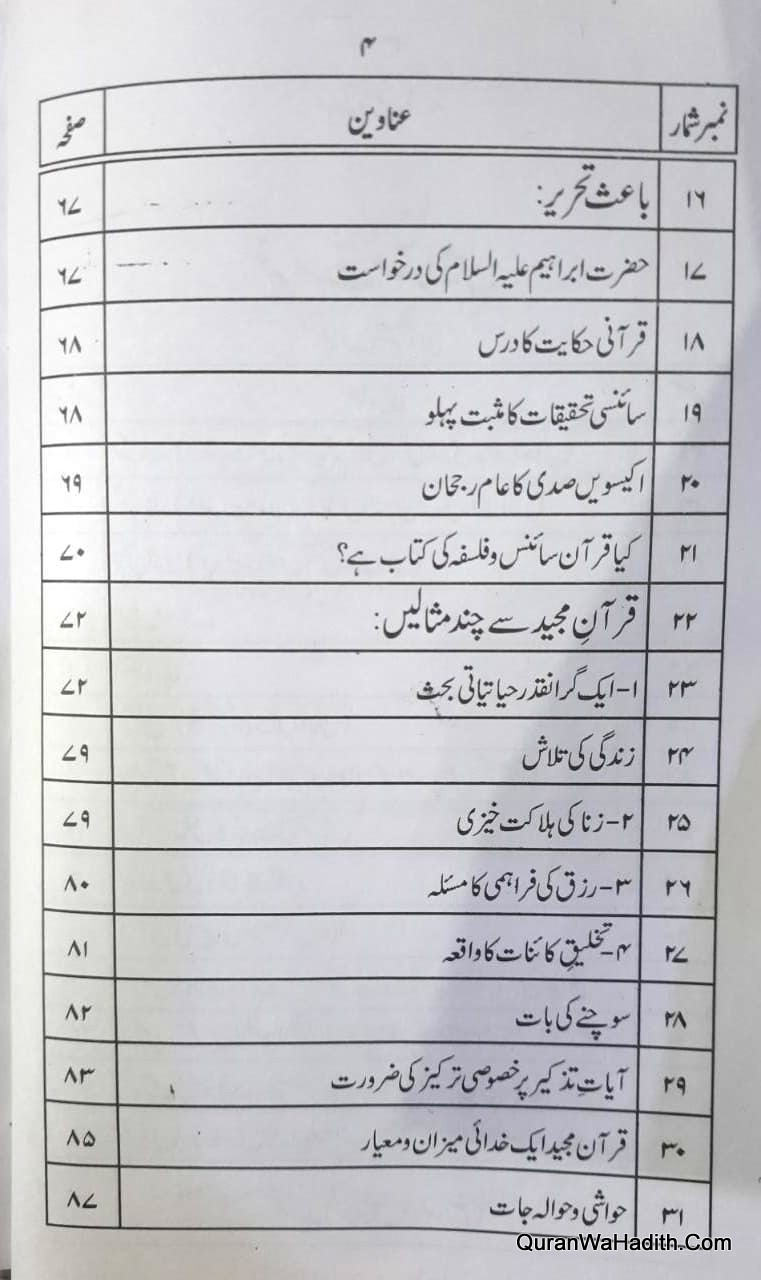 ۴
نمبر شمار عناوین صفحہ
۱۶ باعث تحریر: ۶۷
۱۷ حضرت ابراہیم علیہ السلام کی درخواست ۶۷
۱۸ قرآنی حکایت کا درس ۶۸
۱۹ سائنسی تحقیقات کا مثبت پہلو ۶۸
۲۰ اکیسویں صدی کا عام رجحان ۶۹
۲۱ کیا قرآن سائنس و فلسفہ کی کتاب ہے؟ ۷۰
۲۲ قرآنِ مجید سے چند مثالیں: ۷۲
۲۳ ۱- ایک گرانقدر حیاتیاتی بحث ۷۲
۲۴ زندگی کی تلاش ۷۹
۲۵ ۲- زنا کی ہلاکت خیزی ۷۹
۲۶ ۳- رزق کی فراہمی کا مسئلہ ۸۰
۲۷ ۴- تخلیقِ کائنات کا واقعہ ۸۱
۲۸ سوچنے کی بات ۸۲
۲۹ آیاتِ تذکیر پر خصوصی ترکیز کی ضرورت ۸۳
۳۰ قرآن مجید ایک خدائی میزان و معیار ۸۵
۳۱ حواشی و حوالہ جات ۸۷
QuranWaHadith.Com